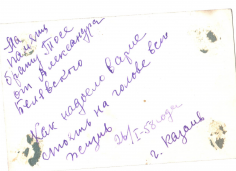 На
память
брату Тосе
от Александра
Белявского
Как надоело Варме
стоять на голове всю
жизнь 26/I-58 года
г. Казань